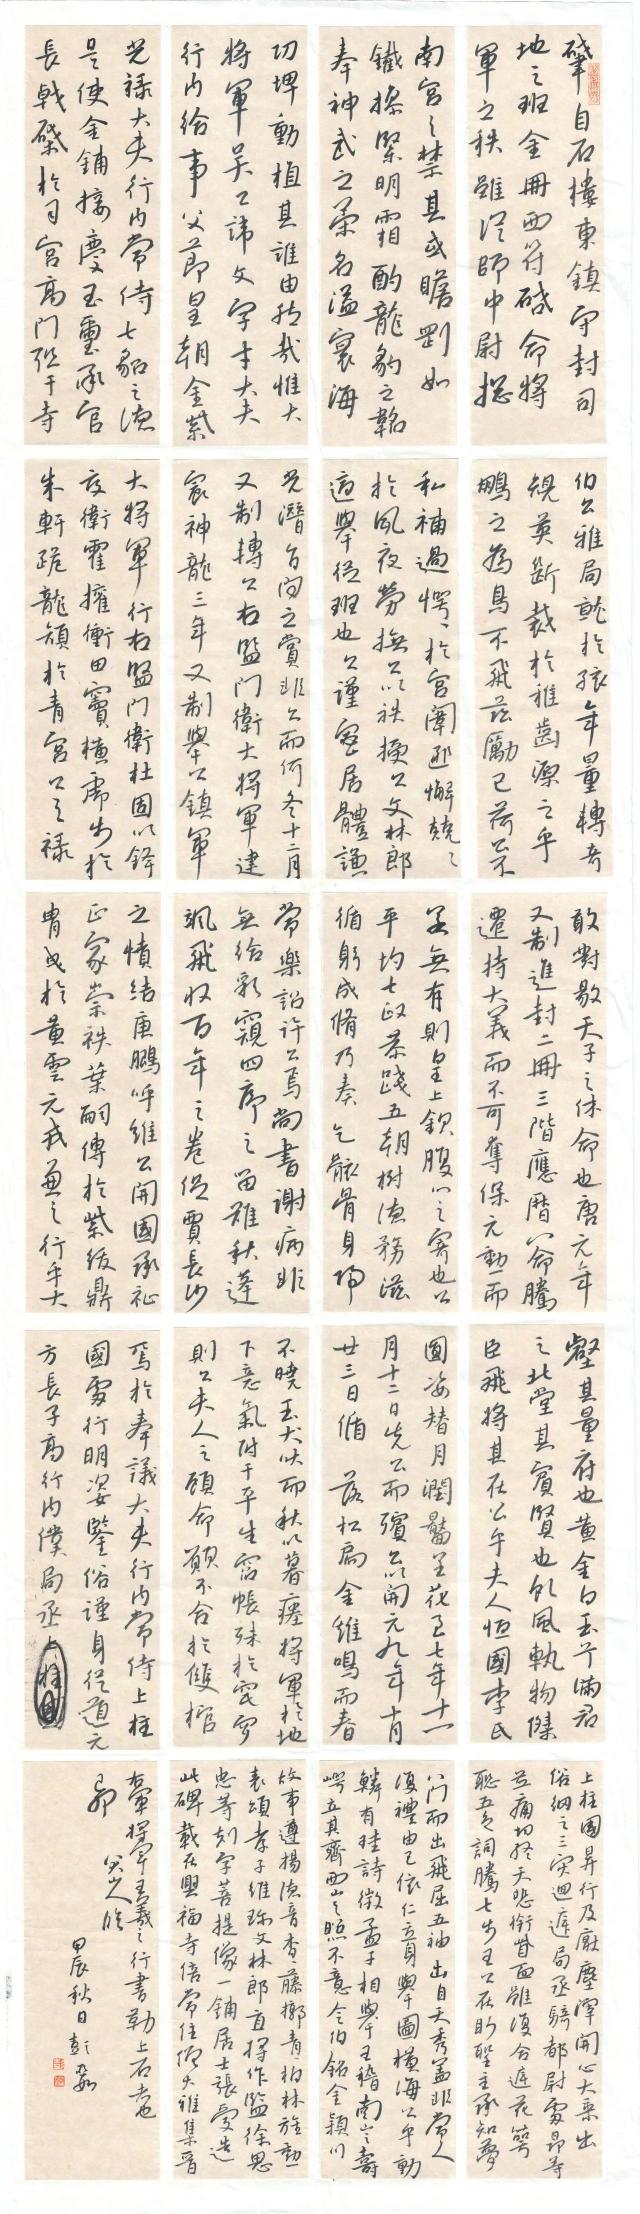 肇自石樓東鎮守封司
地之班金冊西符啓命將
軍之秩雖從師中尉揔
南宮之禁其或瞻劉如
鐵操緊明霜酌龍豹之韜
奉神武之策名溢寰海
功埤動植其誰由於哉惟大
將軍矣公諱文字才大夫
行內給事父節皇朝金紫
光祿大夫行內常侍七貂之
是使金鋪接慶玉璽承官
長戟磔於司宮高門弨于寺
伯公雅局龍於孩年量轉奇
規英斷裁於稚齒深之乎
鵬之為鳥不飛茲勵已荷公不
私補過愕愕於宮闈匪懈兢兢
於夙夜勞撫公以袟授公文林郎
適舉從班也公謹密居體謙
光潛自向之賞非公而何冬十二月
又制轉公右監門衛大將軍建
家神龍三年又制舉公鎮軍
大將軍行右監門衛杜固以鋒
交衛霍擁衝田竇橫虎步於
朱軒跪龍頟於青宮公之祿
敢對敭天子之休命也唐元年
又制進封二冊三階應曆八命騰
遷持大義而不可奪保元勳而
若無有則皇上欽腹心之寄也公
平均七政恭踐五朝樹德務滋
循躬成脩乃奏乞骸骨身歸
常樂詔許公焉尚書謝病非
無給歌窺四序之留難秋蓬
颯飛收百年之卷促賈長沙
之憤結庚鵬呼維公開國承祉
正家崇袟葉嗣傳於紫綬鼎
胄成於黃雲元我兼之行乎大
壑其量府也黃金白玉斤滿君
之北堂其賓賢也飢風執物傑
臣飛將其在公乎夫人恒國李氏
圓姿替月潤臉呈花至七年十一
月十二日先公而殯公以開元九年十月
廿三日循落松扃金雞鳴而春
不曉玉犬吠而秋以暮瘞將軍於地
下意氣附于平生窅帳殊於冥寞
則公夫人之顧命願不合於雙棺
焉於奉議大夫行內常侍上柱
國男行明姿鑒俗謹身從道元
方長子高行內僕局丞
上柱國昇行及厥塵渾開心大乘出
俗網之三災迴遊局丞騎都尉男昂等
並痛切終天悲銜面雖復合遊花萼
聯五色詞騰七步王公在貯聖主承知夢
八門而出飛屈五袖出自天秀蓋非常人
復禮由己依仁立身舉圖橫海公乎動
鱗有珪詩徵孟子相舉王稽南山之壽
崿立其齊西山之照不意令伯銘金潁川
故事遵揚德音杳藤挪青柏林旌勳
表頌孝子維珍文林郎直將作監徐思
忠等刻字菩提像一鋪居士張愛造
此碑載在興福寺倍常住僧大雅集晉
右軍將軍王羲之行書勒上石者也
甲辰秋日彭